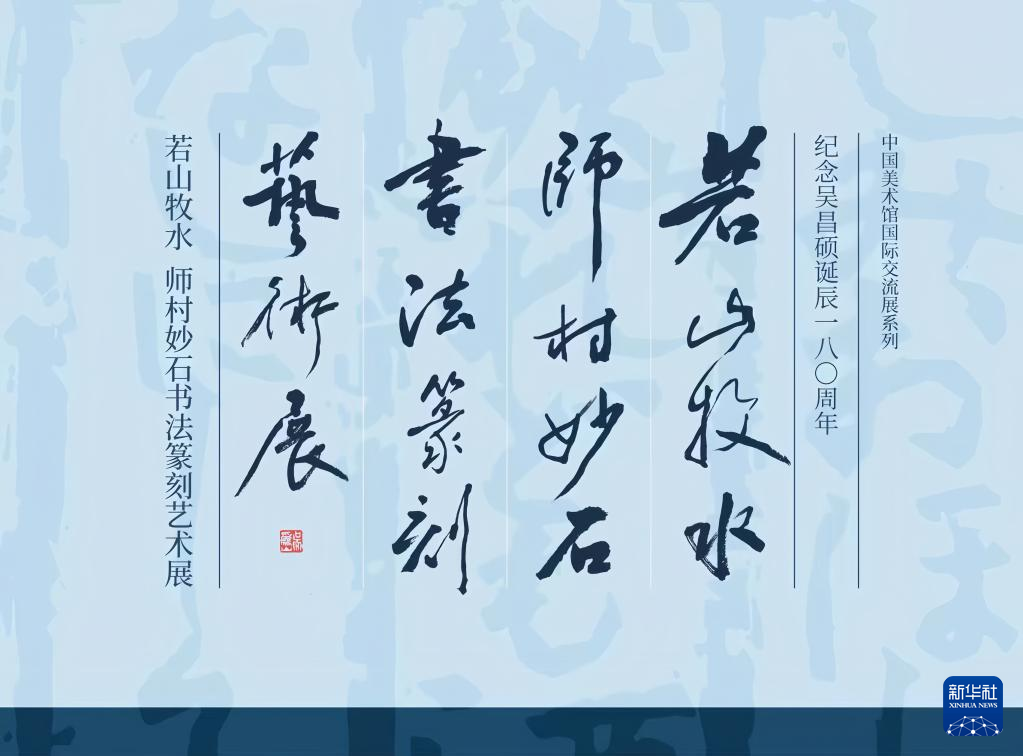 中国美术馆国际交流展系列
纪念吴昌硕诞辰一八〇周年
若山牧水
師村妙石
書法篆刻
藝術展
若山牧水 师村妙石书法篆刻艺术展
新华社
XINHUA NEWS